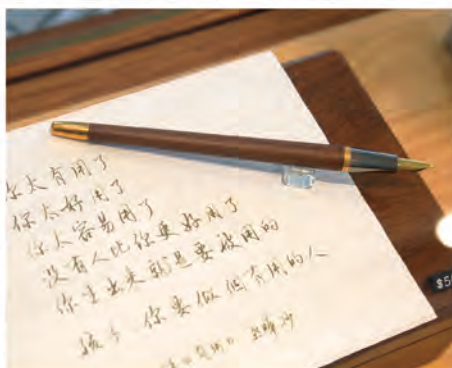 你太有用了
你太好用了
你太容易用了
没有人比你更好用了
你生出来就是要被用的
孩子 你要做個有用的人
$5